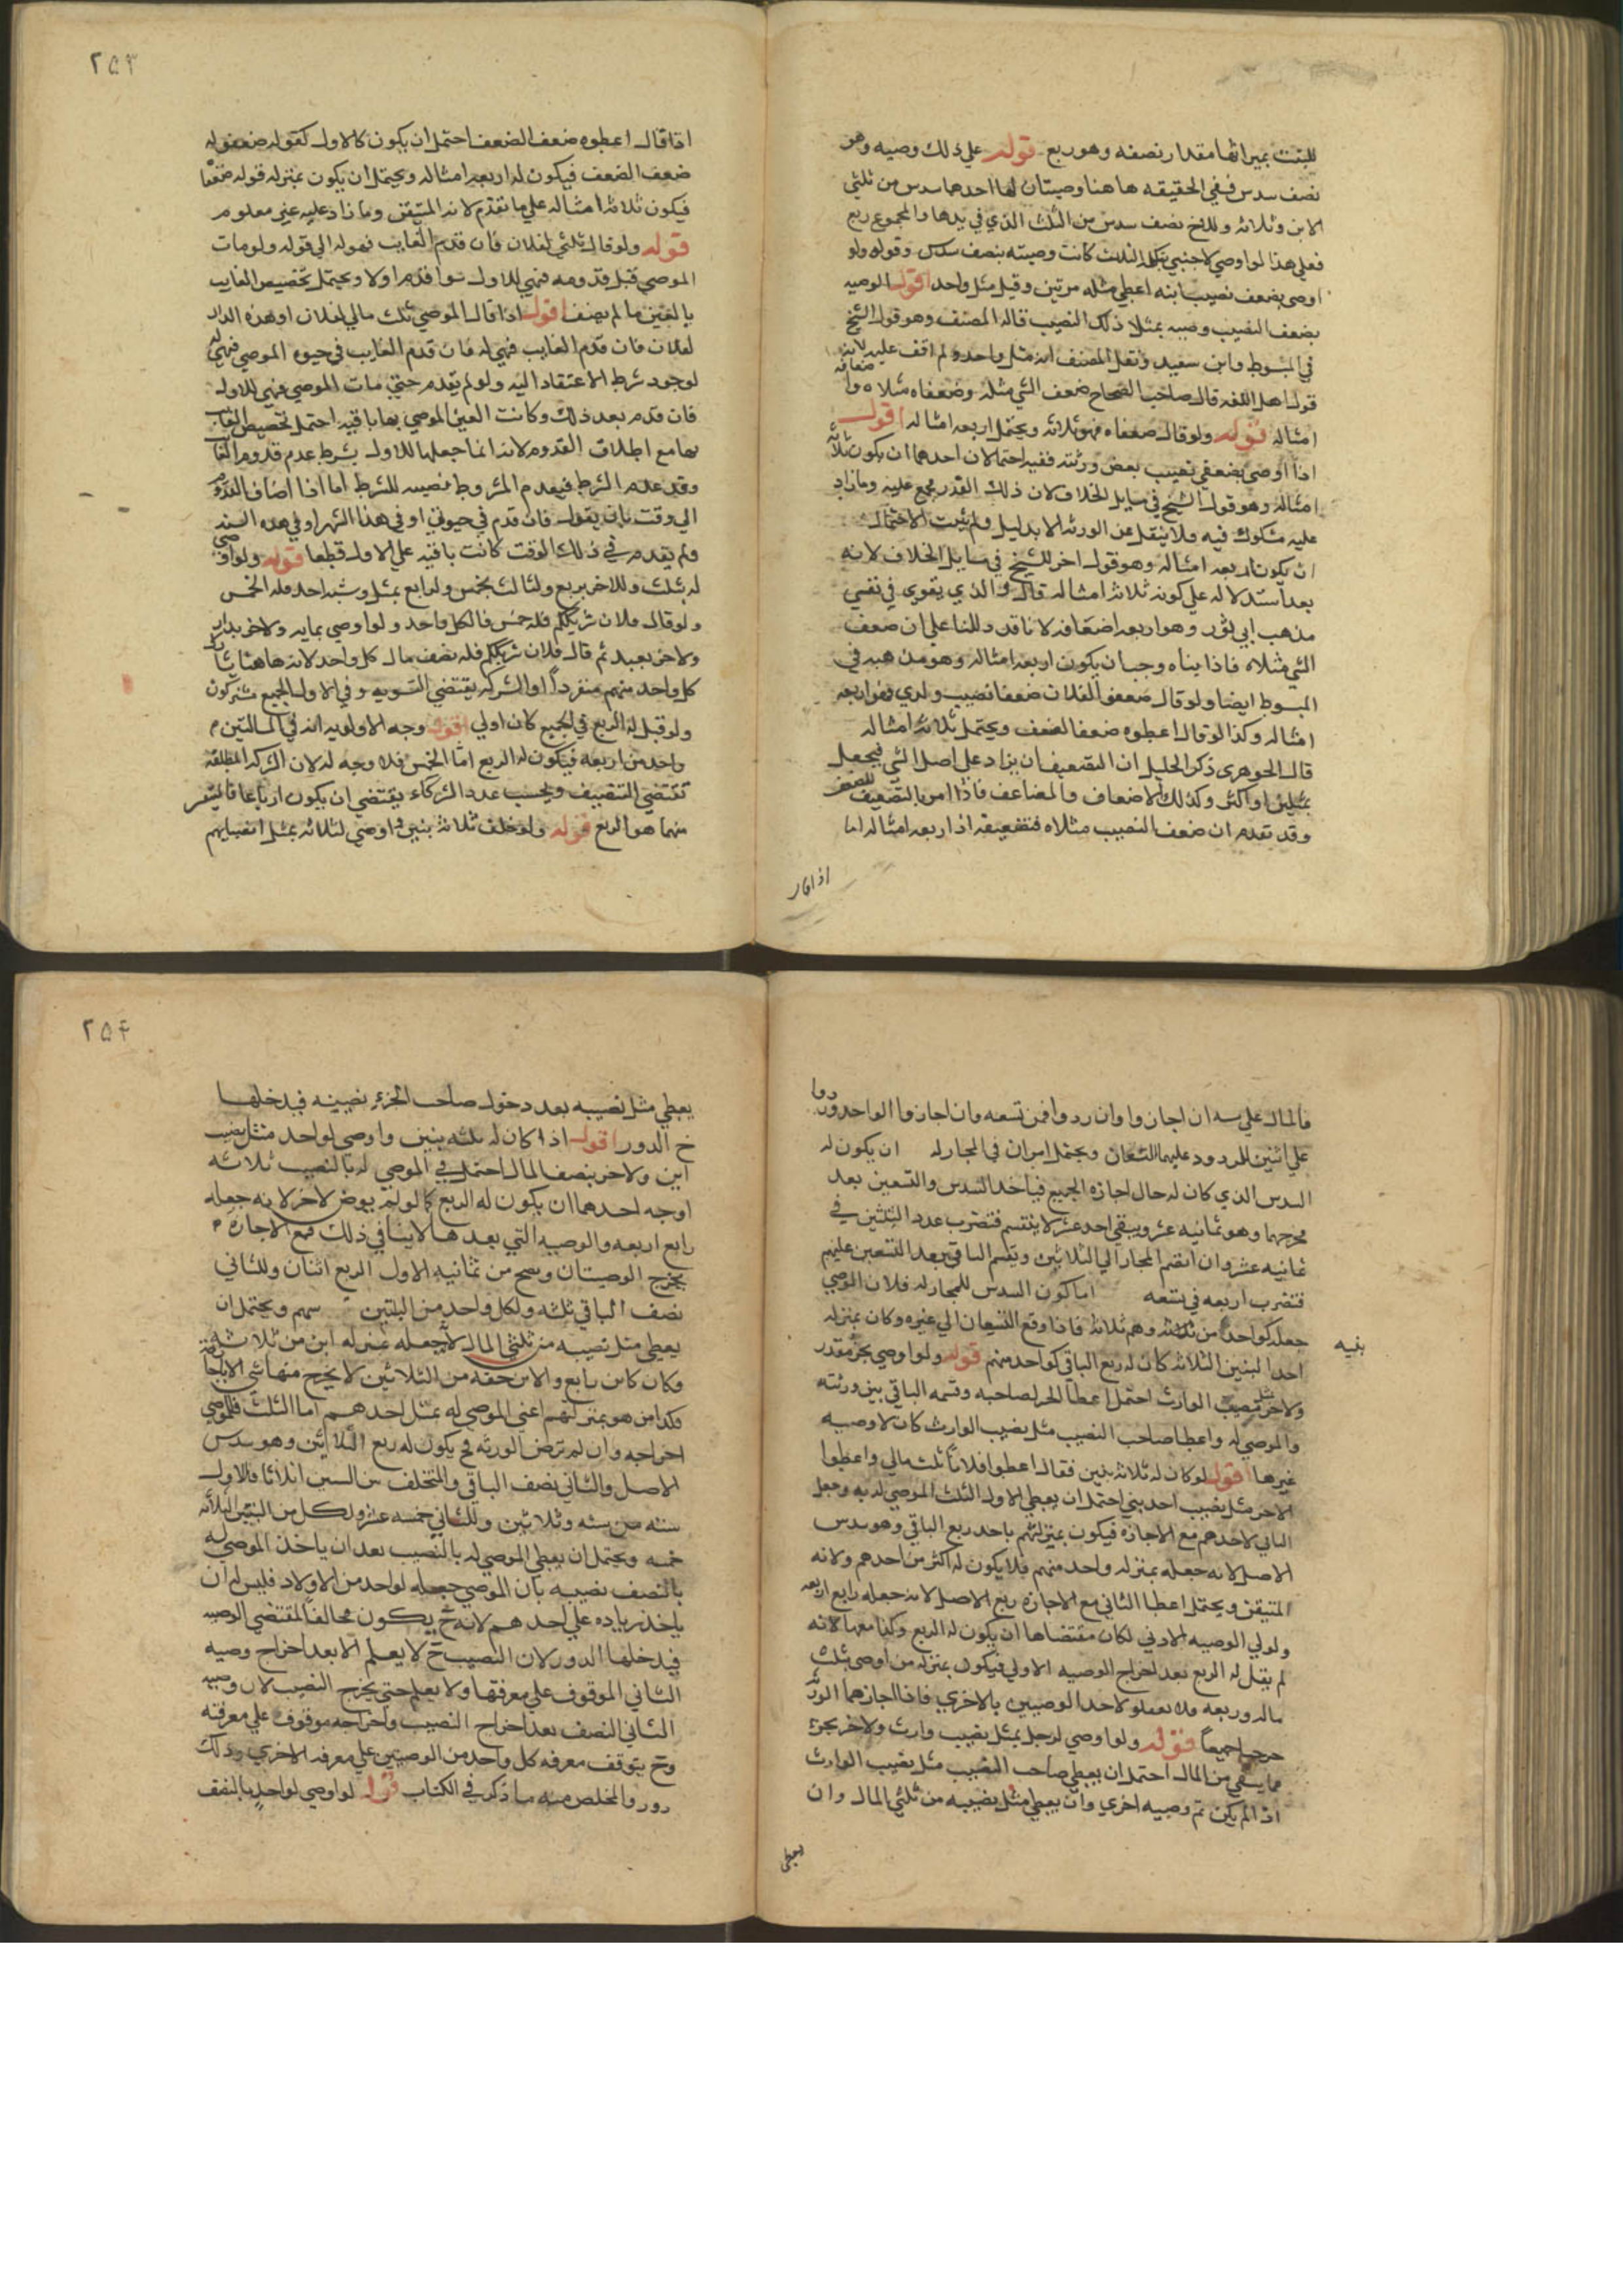 للبنت بميراثها مقدار نصفه وهو ربع قوله علي ذلك وصيه وهو
نصف سدس ففي الحقيقه هاهنا وصيتان لها احدهما سدس من ثلثي
الابن وثلاثه وللاخ نصف سدس من الثلث الذي في يدها والمجموع ربع
فعلي هذا لو اوصي لاجنبي بكل الثلث كانت وصيته بنصف سدس وقوله ولو
اوصي بضعف نصيب ابنه اعطي مثله مرتين وقيل مثل واحد اقول الوصيه
بضعف النصيب وصيه بمثلا ذلك النصيب قاله المصنف وهو قول الشيخ
في المبسوط وابن سعيد ونقل المصنف انه مثل واحد ولم اقف عليه لانه
قول اهل اللغه قال صاحب الصحاح ضعف الشي مثله وضعفاه مثلاه و اضعافه
امثاله قوله ولو قال ضعفاه فهو ثلاثه ويحتمل اربعه امثاله اقول
اذا اوصي بضعفي نصيب بعض ورثته ففيه احتمالان احدهما ان يكون ثلاثه
امثاله وهو قول الشيخ في مسايل الخلاف لان ذلك القدر مجمع عليه وما زاد
عليه مشكوك فيه فلا ينقل عن الورثه الا بدليل ولم يثبت الاحتمال
ان يكون اربعه امثاله وهو قول اخر للشيخ في مسايل الخلاف لانه
بعد استدلاله علي كونه ثلاثه امثاله قال والذي يقوي في نفسي
مذهب ابي ثور وهو اربعه اضعافه لانا قد دللنا علي ان ضعف
الشي مثلاه فاذا ثبناه وجب ان يكون اربعه امثاله وهو مذهبه في
المبسوط ايضا ولو قال ضعفوا لفلان ضعفا نصيب ولدي فهو اربعه
امثاله وكذا لو قال اعطوه ضعف الضعف ويحتمل ثلاثه امثاله
قال الجوهري ذكر الخليل ان التضعيف ان يزاد علي اصل الشي فيجعل
بمثلين او اكثر وكذلك الاضعاف والمضاعف فاذا امر بالتضعيف للضعف
وقد تقدم ان ضعف النصيب مثلاه فتضعيفه اذا اربعه امثاله اما
اذا قال
٢٥٣
اذا قال اعطوه ضعف الضعف احتمل ان يكون كالاول كقوله ضعفوا له
ضعف الضعف فيكون له اربعه امثاله ويحتمل ان يكون بمنزله قوله ضعفا
فيكون ثلاثه امثاله علي ما تقدم لانه المتيقن وما زاد عليه غير معلوم
قوله ولو قال ثلثي لفلان فان قدم الغايب فهو له الي قوله ولو مات
الموصي قبل قدومه فهي للاول سوا قدم اولا ويحتمل تخصيص الغايب
بالعين ما لم يضف اقول اذا قال الموصي ثلث مالي لفلان او هذه الدار
لفلان فان قدم الغايب فهي له فان قدم الغايب في حيوه الموصي فهي له
لوجود شرط الاعتقاد اليه ولو لم يقدم حتي مات الموصي فهي للاول
فان قدم بعد ذلك وكانت العين الموصي بها باقيه احتمل تخصيص الغايب
بها مع اطلاق القدوم لانه انما جعلها للاول بشرط عدم قدوم الغايب
وقد عدم الشرط فيعدم المشروط نصيبه للشرط اما اذا اضاف القدوم
الي وقت بان يقول فان قدم في حيوتي او في هذا الشهر او في هذه السنه
ولم يقدم في ذلك الوقت كانت باقيه علي الاول قطعا قوله ولو اوصي
له بثلث وللاخر بربع ولثالث بخمس ولرابع بمثل وشبه احد فله الخمس
ولو قال فلان شريككم فله خمس فا لكل واحد ولو اوصي بمايه ولاخر بدار
ولاخر بعبد ثم قال فلان شريككم فله نصف مال كل واحد لانه هاهنا شارك
كل واحد منهم منفردا والشركه يقتضي التسويه وفي الاول الجميع مشتركون
ولو قيل له الربع في الجميع كان اولي اقول وجه الاولويه انه في المسالتين م
واحد من اربعه فيكون له الربع اما الخمس فلا وجه له لان الشركه المطلقه
تقتضي التنصيف وبحسب عدد الشركاء يقتضي ان يكون ارباعا فالمتيقن
منهما هو الربع قوله ولو خلف ثلاثه بنين واوصي لثلاثه بمثل انصبايهم
فالمال علي سته ان اجازوا وان ردوا فمن تسعه وان اجازوا الواحد وردوا
علي اثنين للمردود عليهما التسعان ويحتمل امران في المجاز له ان يكون له
السدس الذي كان له حال اجازه الجميع فياخذ السدس والتسعين بعد
مخرجهما وهو ثمانيه عشر ويبقي احد عشر لا ينقسم فتضرب عدد البنين في
ثمانيه عشر وان انضم المجاز الي الثلاثين ويقسم الباقي بعد التسعين عليهم
فتضرب اربعه في تسعه اما كون السدس للمجاز له فلان الموصي
جعله كواحد من بنيه وهم ثلاثه فاذا وقع التسعان الي غيره وكان بمنزله
احد البنين الثلاثه كان له ربع الباقي كواحد منهم قوله ولو اوصي بجزء مقدر
ولاخر بمثل نصيب الوارث احتمل اعطا الجزء لصاحبه وقسمه الباقي بين ورثته
والموصي له واعطا صاحب النصيب مثل نصيب الوارث كان لا وصيه
غيرها اقول لو كان له ثلاثه بنين فقال اعطوا فلانا ثلث مالي واعطوا
الاخر مثل نصيب احد بني احتمل ان يعطي الاول الثلث الموصي له به وجعل
الثاني لاحدهم مع الاجازه فيكون بمنزلتهم ياخذ ربع الباقي وهو سدس
الاصل لانه جعله بمنزله واحد منهم فلا يكون له اكثر من احدهم ولانه
المتيقن ويحتمل اعطا الثاني مع الاجازه ربع الاصل لانه جعله رابع اربعه
ولولي الوصيه الاولي لكان مقتضاها ان يكون له الربع وكذا معها لانه
لم يقل له الربع بعد اخراج الوصيه الاولي فيكون بمنزله من اوصي بثلث
ماله وربعه ولا تعلق لاحد الوصيتين بالاخري فاذا اجازهما الورثه
خرجا جميعا قوله ولو اوصي لرجل بمثل نصيب وارث ولاخر بجزء
مما يبقي من المال احتمل ان يعطي صاحب النصيب مثل نصيب الوارث
اذا لم يكن ثم وصيه اخري وان يعطي مثل نصيبه من ثلثي المال وان
بنيه
يعطي
٢٥٤
يعطي مثل نصيبه بعد دخول صاحب الجزء نصيبه فيدخلها
ح الدور اقول اذا كان له ثلثه بنين واوصي لواحد مثل نصيب
ابن ولاخر بنصف المال احتمل في الموصي له بالنصيب ثلاثه
اوجه احدها ان يكون له الربع كما لو لم يوص لاخر لانه جعله
رابع اربعه والوصيه التي بعدها لا ينافي ذلك فمع الاجازه م
يخرج الوصيتان وتصح من ثمانيه الاول الربع اثنان وللثاني
نصف الباقي ثلثه ولكل واحد من البنين سهم ويحتمل ان
يعطي مثل نصيبه من ثلثي المال لانه جعله بمنزله ابن من ثلاثه
وكان كابن رابع والابن حقه من الثلاثين لا يخرج منها شي الا باجازته
وكذا من هو بمنزلتهم اعني الموصي له بمثل احدهم اما الثلث فللموصي
اخراجه وان لم ترض الورثه ح يكون له ربع الثلثين وهو سدس
الاصل والثاني نصف الباقي والمتخلف بين البنين اثلاثا فالاول
سته من سته وثلاثين وللثاني خمسه عشر ولكل من البنين الثلاثه
خمسه ويحتمل ان يعطي الموصي له بالنصيب بعد ان ياخذ الموصي له
بالنصف نصيبه بان الموصي جعله لواحد من الاولاد فليس له ان
ياخذ زياده علي احدهم لانه ح يكون مخالفا لمقتضي الوصيه
فيدخلها الدور لان النصيب ح لا يعلم الا بعد اخراج وصيه
الثاني الموقوف علي معرفتها ولا يعلم حتي يخرج النصيب لان وصيه
الثاني النصف بعد اخراج النصيب واخراجه موقوف علي معرفته
وح يتوقف معرفه كل واحد من الوصيتين علي معرفه الاخري وذلك
دور والمخلص منه ما ذكر في الكتاب قوله لو اوصي لواحد بالنصف